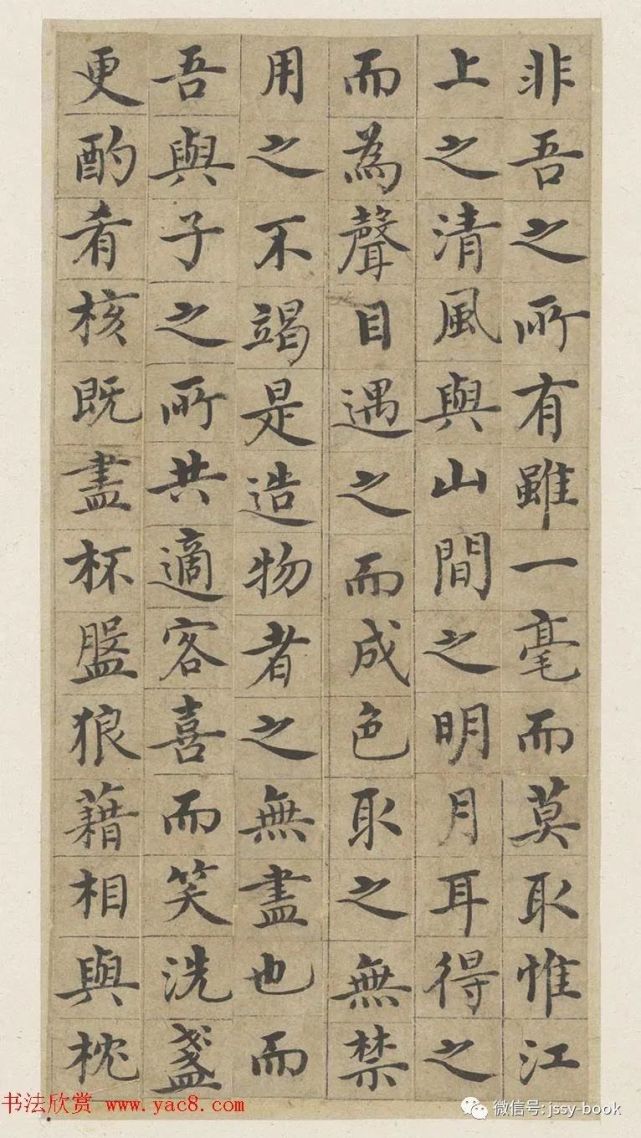 非吾之所有雖一毫而莫取惟江
上之清風與山間之明月耳得之
而為聲目遇之而成色取之無禁
用之不竭是造物者之無盡也而
吾與子之所共適客喜而笑洗盞
更酌肴核既盡杯盤狼藉相與枕
书法欣赏 www.yac8.com
微信号:jssy-book